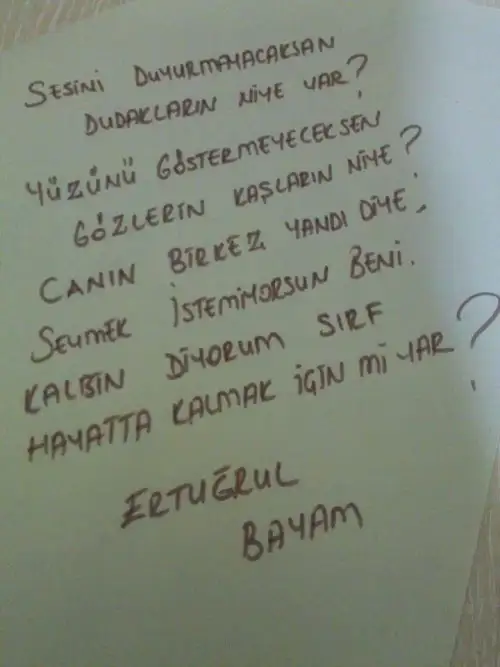 SESİNİ DUYURMAYACAKSAN
DUDAKLARIN NİYE VAR?
YÜZÜNÜ GÖSTERMEYECEKSEN
GÖZLERİN KAŞLARIN NİYE?
CANIN BİRKEZ YANDI DİYE,
SEVMEK İSTEMİYORSUN BENİ.
KALBİN DİYORUM SIRF
HAYATTA KALMAK İÇİN Mİ VAR?
ERTUĞRUL
BAYAM